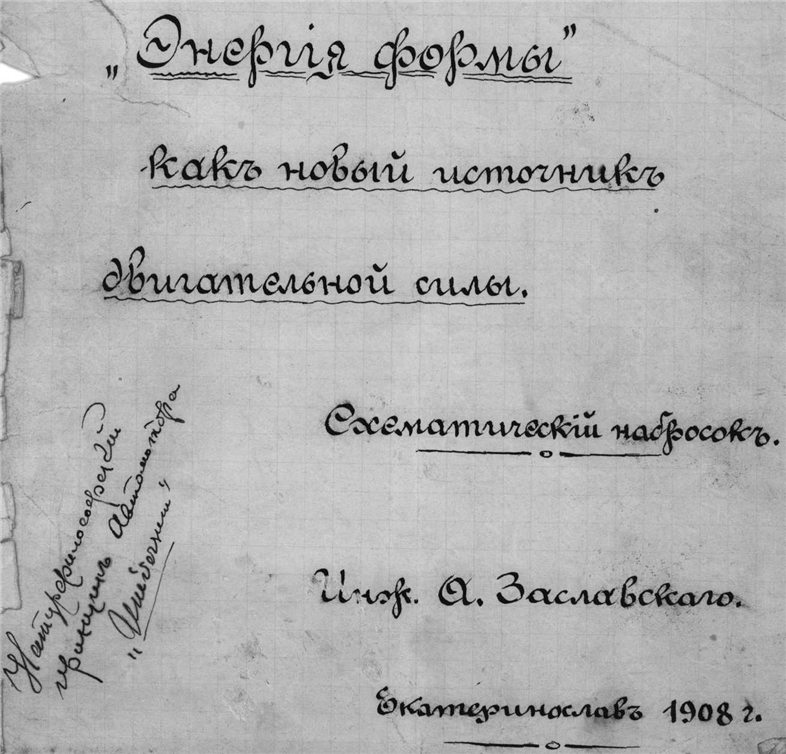 „Энергія формы”
какъ новый источникъ
двигательной силы.
Схематическій набросокъ.
Инж. А. Заславскаго.
Екатеринославъ 1908 г.
Натурфилософскій
принципъ автомотора